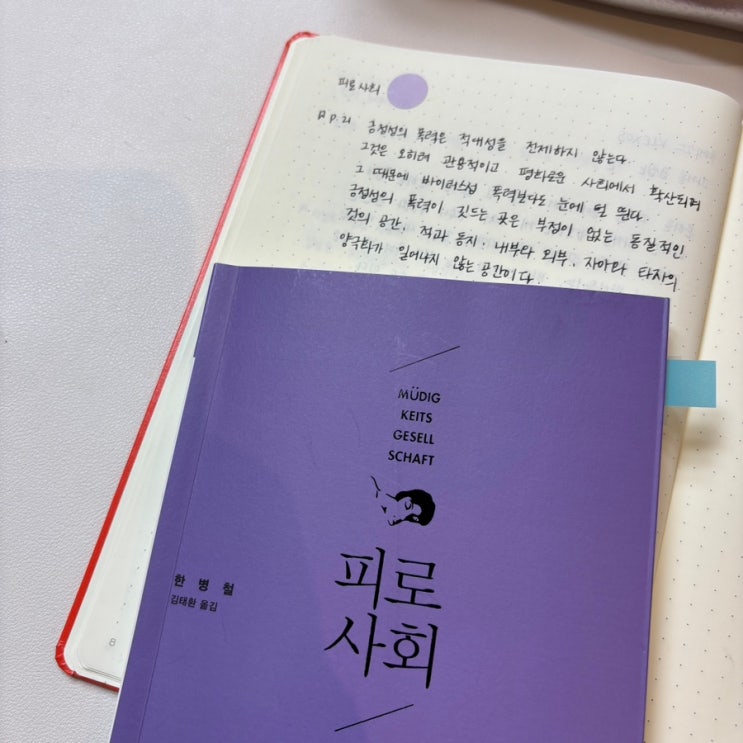 피로사회
p.21 긍정성의 폭력은 적대성을 전제하지 않는다.
그것은 오히려 관용적이고 평화로운 사회에서 확산되며
그 때문에 바이러스성 폭력보다도 눈에 덜 띈다.
긍정성의 폭력이 깃드는 곳은 부정이 없는 동질적인
것의 공간, 적과 동지, 내부와 외부, 자아와 타자의
양극화가 일어나지 않는 공간이다.
MÜDIG
KEITS
GESELL
SCHAFT
피로
사회
한병철
김태환 옮김
8